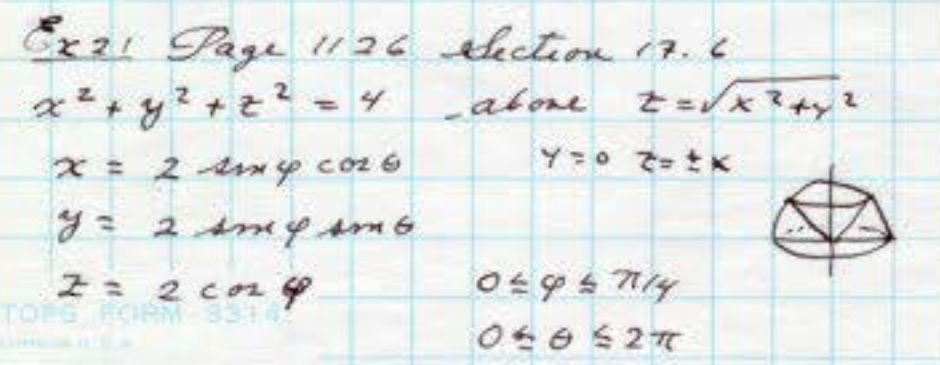 Ex 21 Page 1126 Section 17.6
x² + y² + z² = 4 above z = √x² + y²
x = 2 sin φ cos θ y = 0 z = ± x
y = 2 sin φ sin θ
z = 2 cos φ 0 ≤ φ ≤ π/4
TOPS FORM 3314
0 ≤ θ ≤ 2π